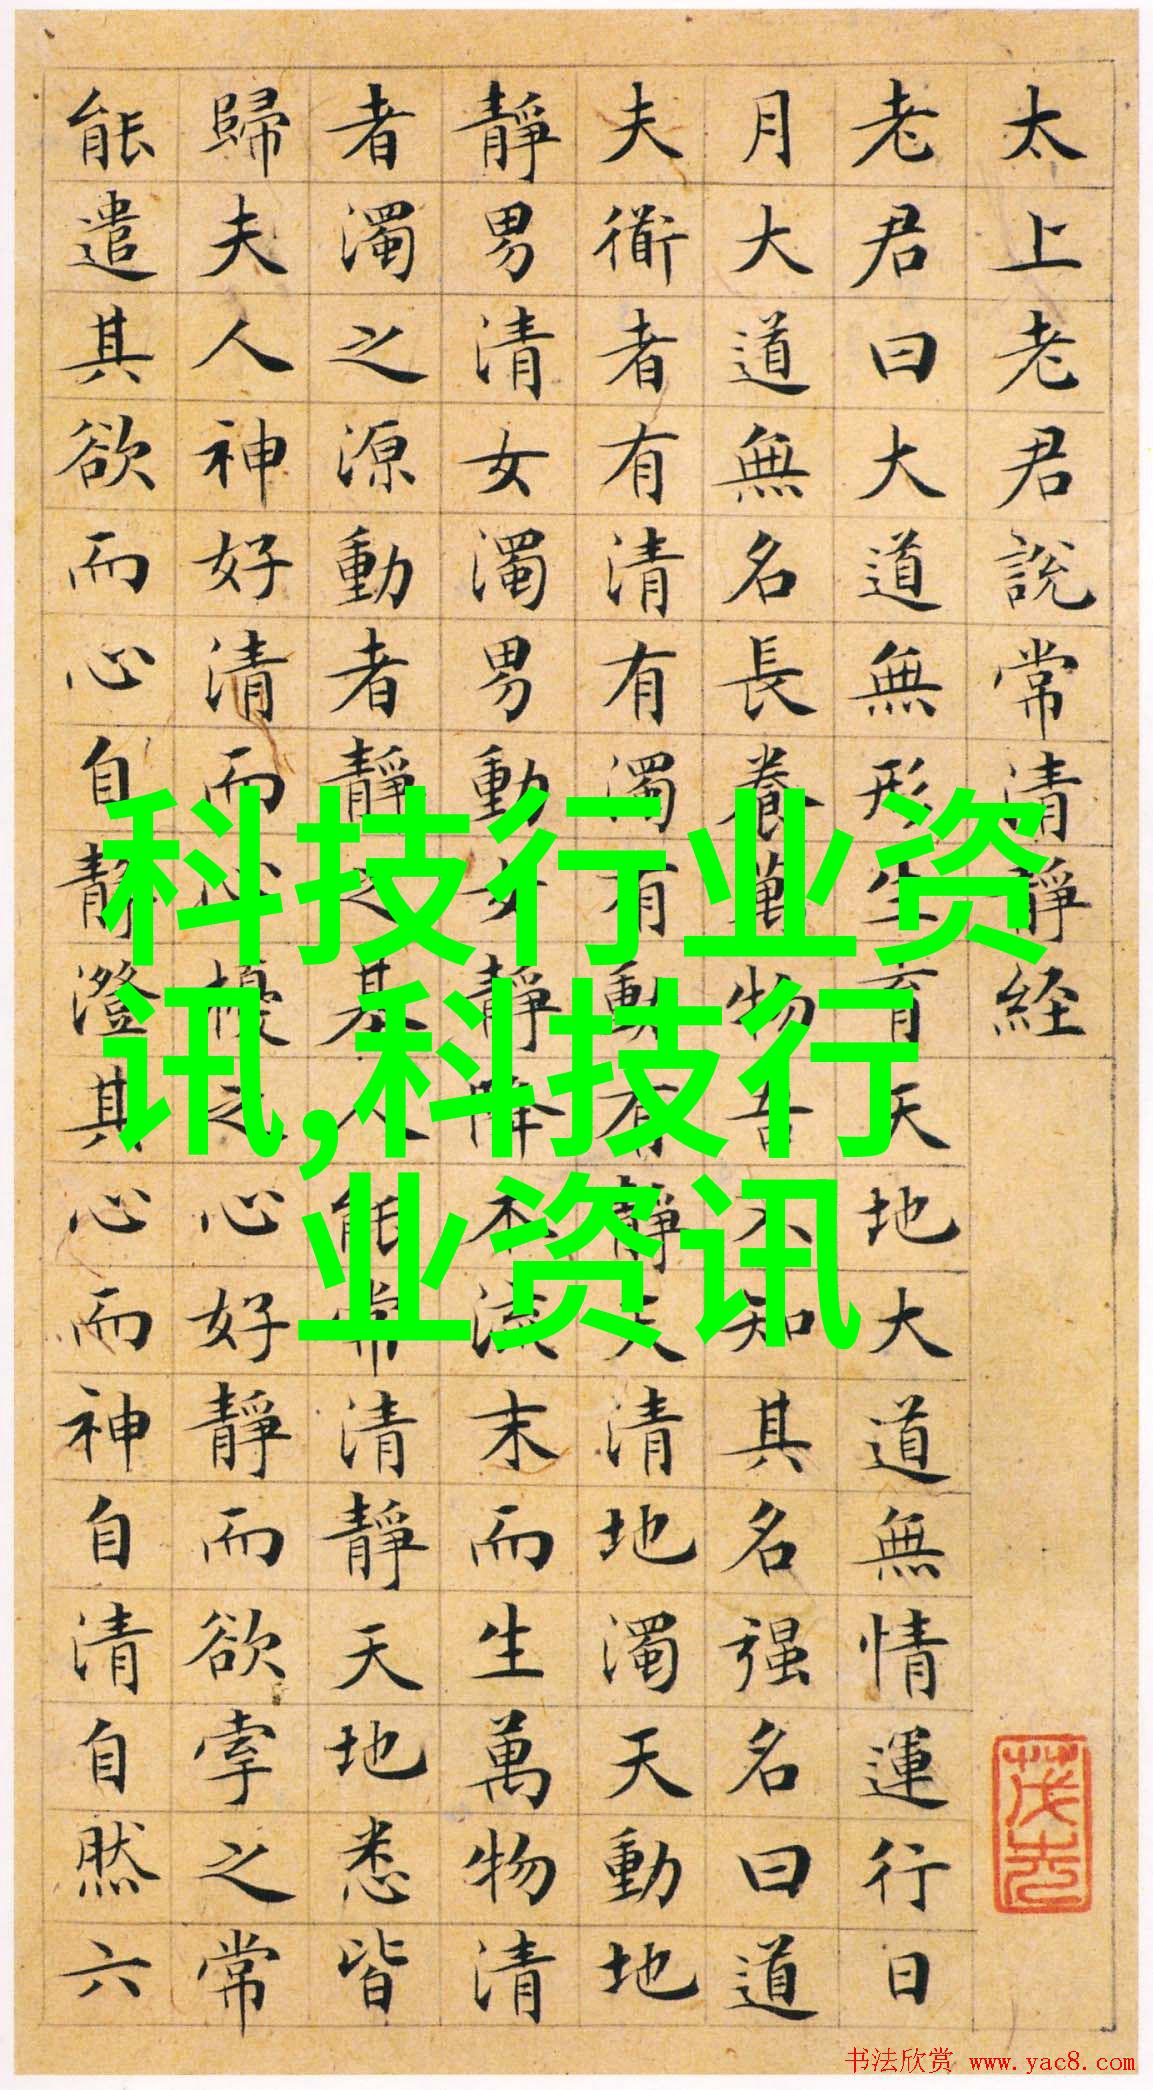 太上老君說常清靜経
老君曰大道無形生育天地大道無情運行日
月大道無名長養萬物吾不知其名强名曰道
夫衜者有清有濁有動有靜天清地濁天動地
靜男清女濁男動女靜降本流末而生萬物清
者濁之源動者靜之基人能常清靜天地悉皆
歸夫人神好清而心擾之心好靜而欲牽之常
能遣其欲而心自靜澄其心而神自清自然六
科技行业资
讯,科技行
业资讯
书法欣赏 www.yac8.com